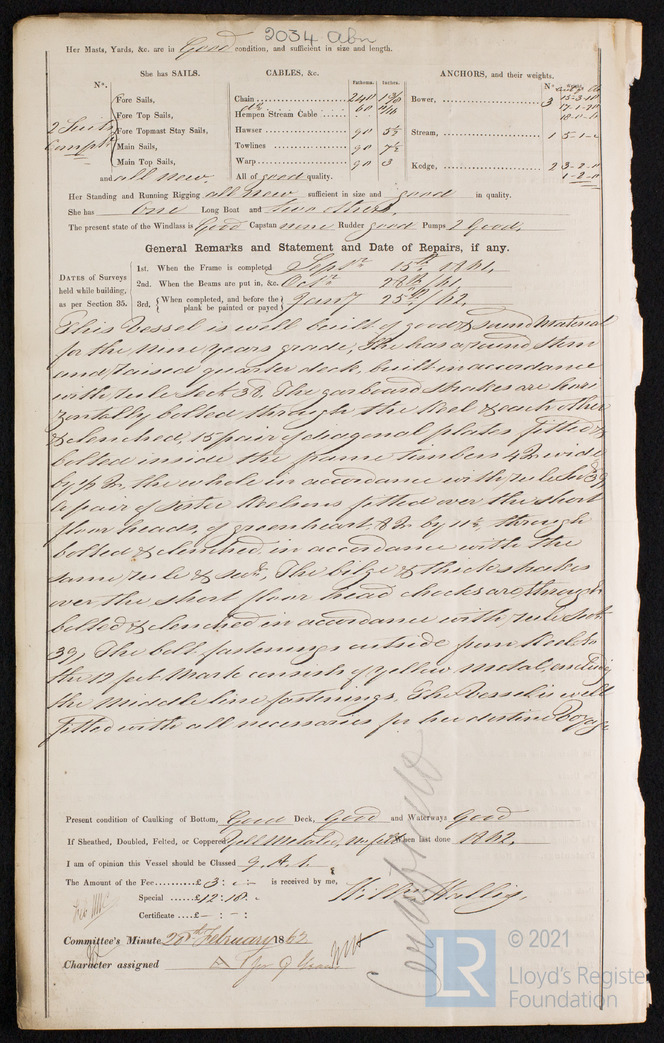 2034 Abn
Her Masts, Yards, &c. are in Good condition, and sufficient in size and length.
She has SAILS.
CABLES, &c.
ANCHORS, and their weights.
N°.
Fathoms. Inches.
N°.
Fore Sails,
Fore Top Sails,
2 Suits
Fore Topmast Stay Sails,
Compt.
Main Sails,
Main Top Sails,
and all new.
Chain 240
do 60
Hempen Stream Cable
Hawser 90 5½
Towlines 90 7½
Warp 90 3
All of good quality.
Bower, 3
Stream, 1 5-1-
Kedge, 2 3-2-0
1-2-0
Her Standing and Running Rigging all new sufficient in size and good in quality.
She has One Long Boat and two others.
The present state of the Windlass is Good Capstan none Rudder good Pumps 2 Good.
General Remarks and Statement and Date of Repairs, if any.
DATES of Surveys held while building, as per Section 35.
1st. When the Frame is completed Septr. 15th. 1861.
2nd. When the Beams are put in, &c. Octr. 28th. 61.
3rd. When completed, and before the plank be painted or payed Jany 25th. 62.
This Vessel is well built of good & sound Material
for the nine Years grade, She has a round Stern
and raised quarter deck, built in accordance
with rule Sect 38. The garboard strakes are hori
zontally bolted through the Keel & each other
& clenched, 15 pair of diagonal plates fitted &
bolted inside the frame timbers 4 In wide
by ½ In. the whole in accordance with rule Sec 39
a pair of sister Keelsons fitted over the short
floor heads, of greenheart, 8 In by 11½ through
bolted & clenched in accordance with the
same rule & secn. The bilge & thick strakes
over the short floor head chocks are through
bolted & clenched in accordance with rule Sect
39, The bolt fastenings outside from Keel to
the 12 feet Mark consists of yellow metal, including
the Middle line fastenings. The Vessel is well
fitted with all necessaries for her destined Voyage
Present condition of Caulking of Bottom, Good Deck, Good and Waterways Good
If Sheathed, Doubled, Felted, or Coppered Yell Metaled, on felt When last done 1862.
I am of opinion this Vessel should be Classed 9. A. 1.
The Amount of the Fee £3: -: - is received by me,
Special £12:18. -
Certificate £ - : - :
Committee's Minute 20th February 1862
Character assigned A 1 for 9 Years
LR
© 2021
Lloyd's Register
Foundation